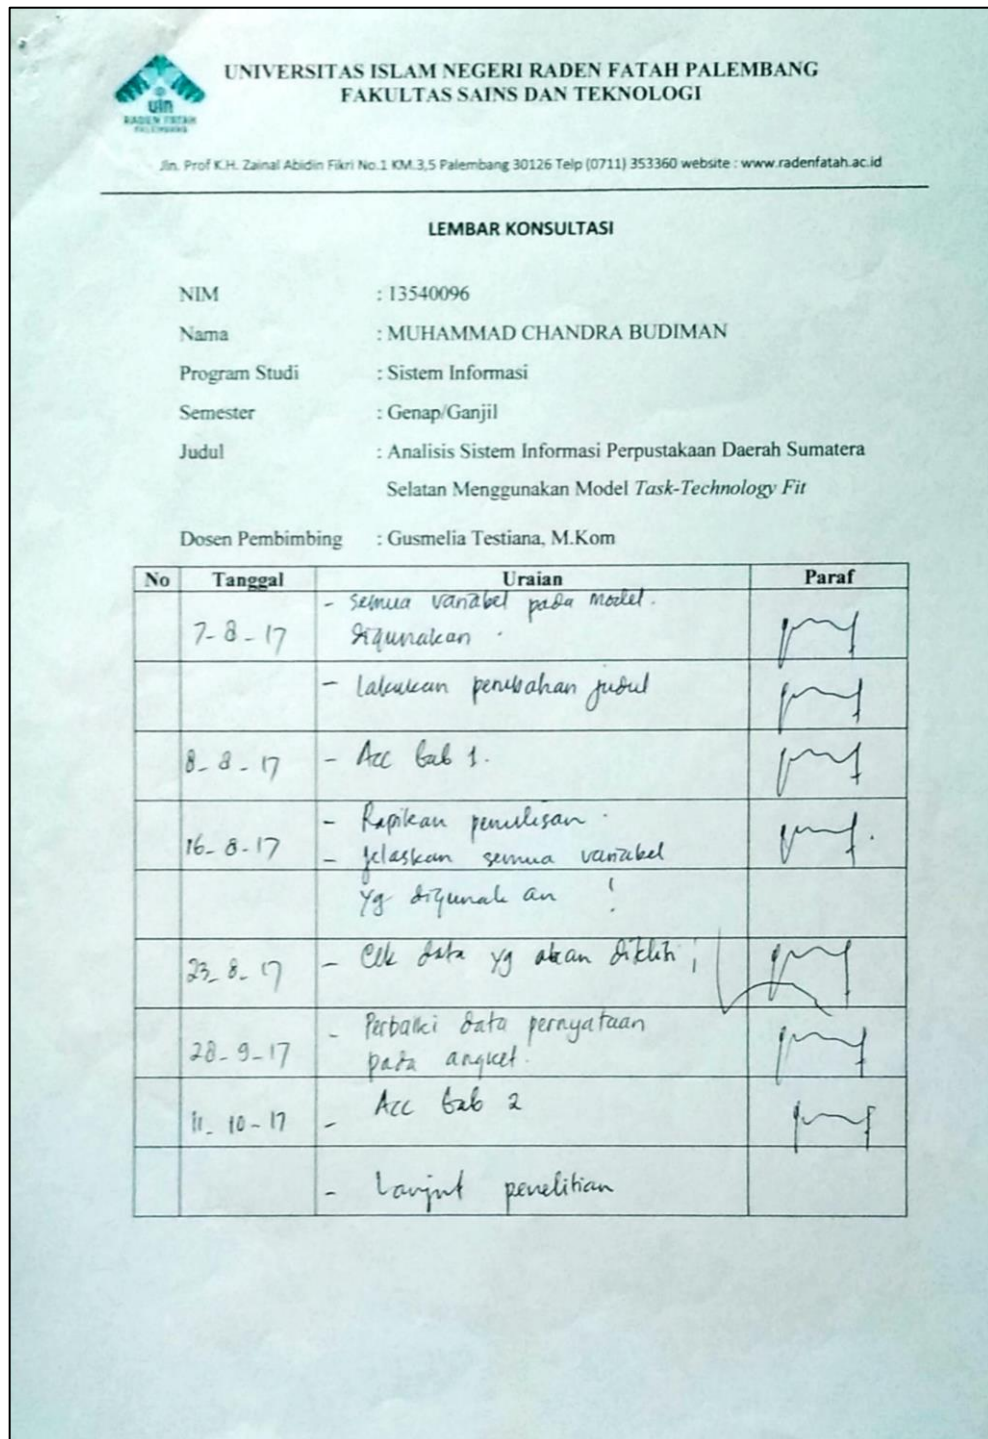 UNIVERSITAS ISLAM NEGERI RADEN FATAH PALEMBANG
FAKULTAS SAINS DAN TEKNOLOGI
uin
RADEN FATAH
PALEMBANG
Jln. Prof K.H. Zainal Abidin Fikri No.1 KM.3,5 Palembang 30126 Telp (0711) 353360 website : www.radenfatah.ac.id
LEMBAR KONSULTASI
NIM : 13540096
Nama : MUHAMMAD CHANDRA BUDIMAN
Program Studi : Sistem Informasi
Semester : Genap/Ganjil
Judul : Analisis Sistem Informasi Perpustakaan Daerah Sumatera
Selatan Menggunakan Model Task-Technology Fit
Dosen Pembimbing : Gusmelia Testiana, M.Kom
No Tanggal Uraian Paraf
- semua variabel pada model.
7-8-17 digunakan.
- lakukan perubahan judul
8-8-17 - Acc bab 1.
- Rapikan penulisan.
16-8-17 - jelaskan semua variabel
yg digunakan !
23-8-17 - Cek data yg akan diteliti ;
- Perbaiki data pernyataan
28-9-17 pada angket.
11-10-17 - Acc bab 2
- Lanjut penelitian